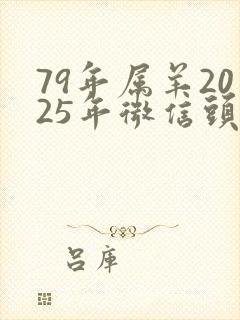 79年属羊20
25年微信頭
吕庫